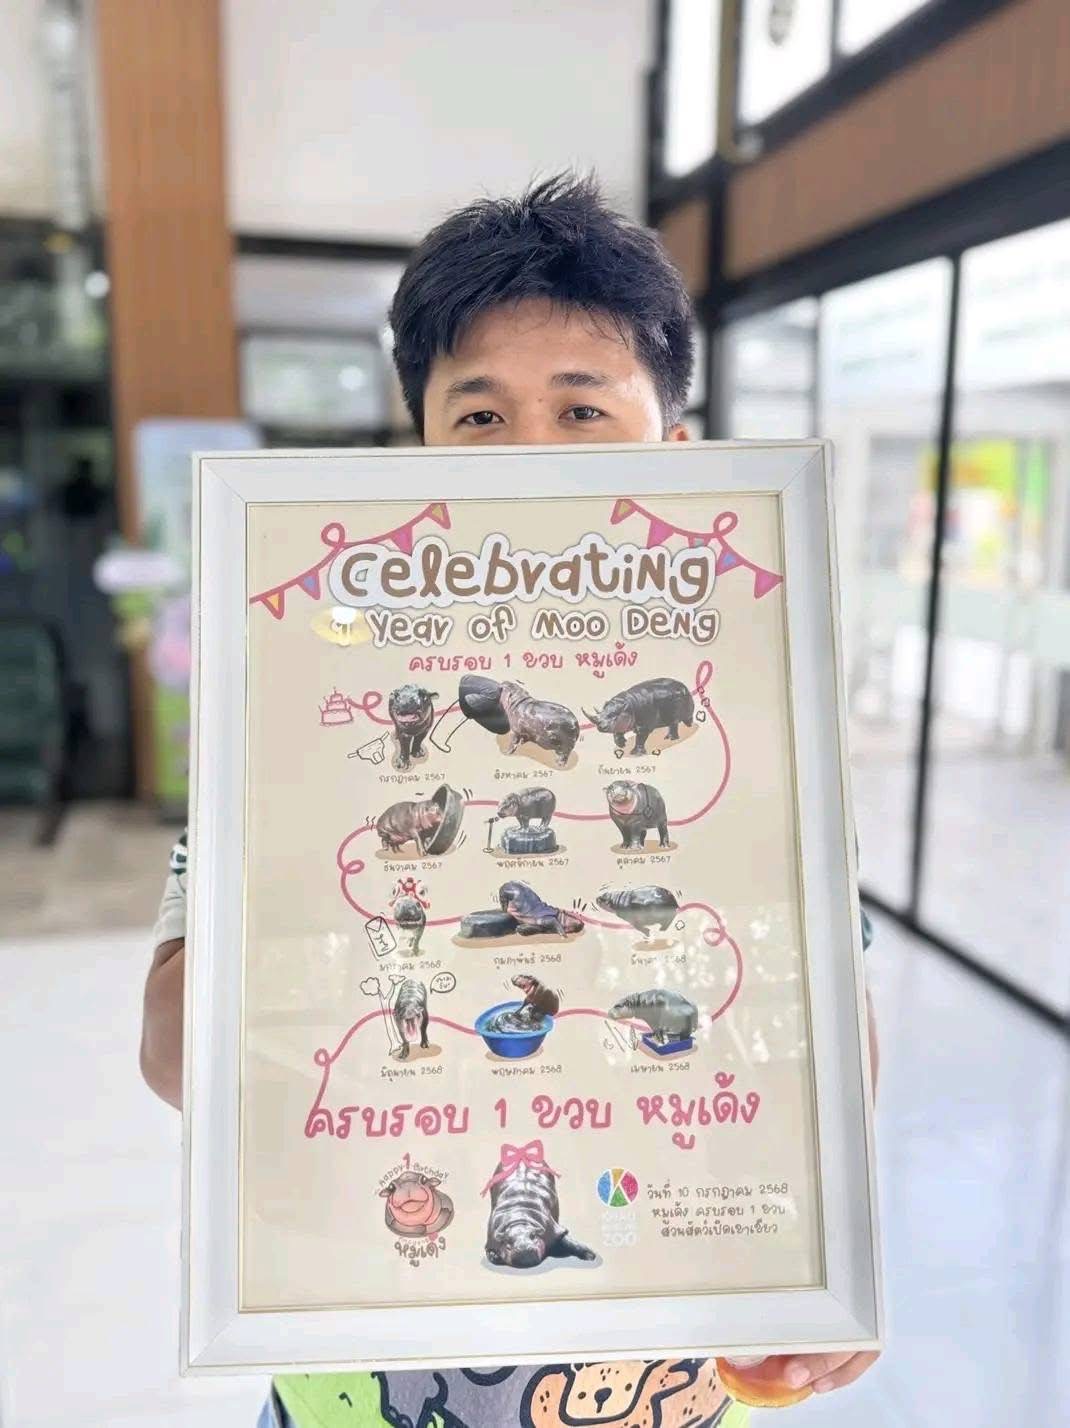 Celebrating
1 Year of Moo Deng
ครบรอบ 1 ขวบ หมูเด้ง
กรกฎาคม 2567 สิงหาคม 2567 กันยายน 2567
ธันวาคม 2567 พฤศจิกายน 2567 ตุลาคม 2567
มกราคม 2568 กุมภาพันธ์ 2568 มีนาคม 2568
มิถุนายน 2568 พฤษภาคม 2568 เมษายน 2568
ครบรอบ 1 ขวบ หมูเด้ง
Happy 1 Birthday
หมูเด้ง
ZOO
วันที่ 10 กรกฎาคม 2568
หมูเด้ง ครบรอบ 1 ขวบ
สวนสัตว์เปิดเขาเขียว